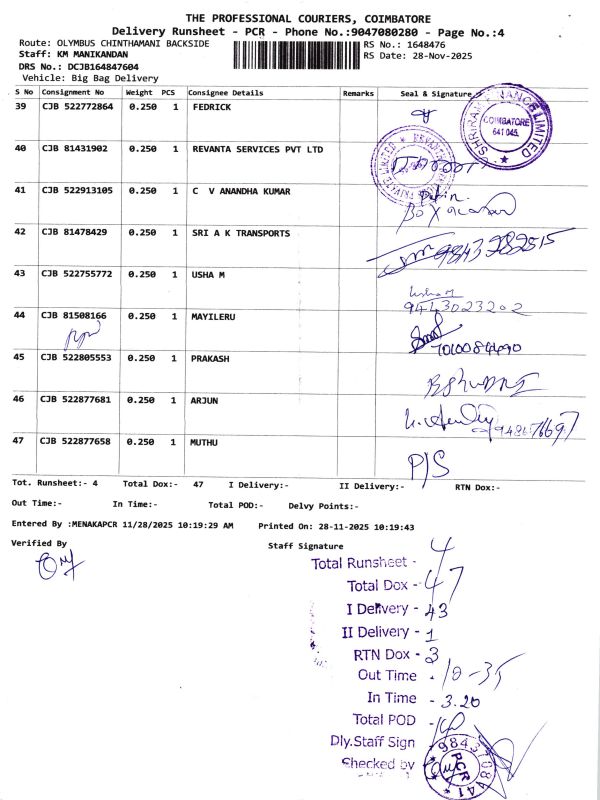 THE PROFESSIONAL COURIERS, COIMBATORE
Delivery Runsheet - PCR - Phone No.:9047080280 - Page No.:4
Route: OLYMBUS CHINTHAMANI BACKSIDE RS No.: 1648476
Staff: KM MANIKANDAN RS Date: 28-Nov-2025
DRS No.: DCJB164847604
Vehicle: Big Bag Delivery
S No Consignment No Weight PCS Consignee Details Remarks Seal & Signature
39 CJB 522772864 0.250 1 FEDRICK
SHRIRAM FINANCE LIMITED
COIMBATORE
641 045.
40 CJB 81431902 0.250 1 REVANTA SERVICES PVT LTD
41 CJB 522913105 0.250 1 C V ANANDHA KUMAR
42 CJB 81478429 0.250 1 SRI A K TRANSPORTS
9843982515
43 CJB 522755772 0.250 1 USHA M
Usha M
9443023202
44 CJB 81508166 0.250 1 MAYILERU
45 CJB 522805553 0.250 1 PRAKASH
46 CJB 522877681 0.250 1 ARJUN
47 CJB 522877658 0.250 1 MUTHU
P/S
Tot. Runsheet:- 4 Total Dox:- 47 I Delivery:- II Delivery:- RTN Dox:-
Out Time:- In Time:- Total POD:- Delvy Points:-
Entered By :MENAKAPCR 11/28/2025 10:19:29 AM Printed On: 28-11-2025 10:19:43
Verified By Staff Signature
Total Runsheet - 4
Total Dox - 47
I Delivery - 43
II Delivery - 1
RTN Dox - 3
Out Time - 10-35
In Time - 3.20
Total POD -
Dly.Staff Sign
Checked by
9843708441
PCR